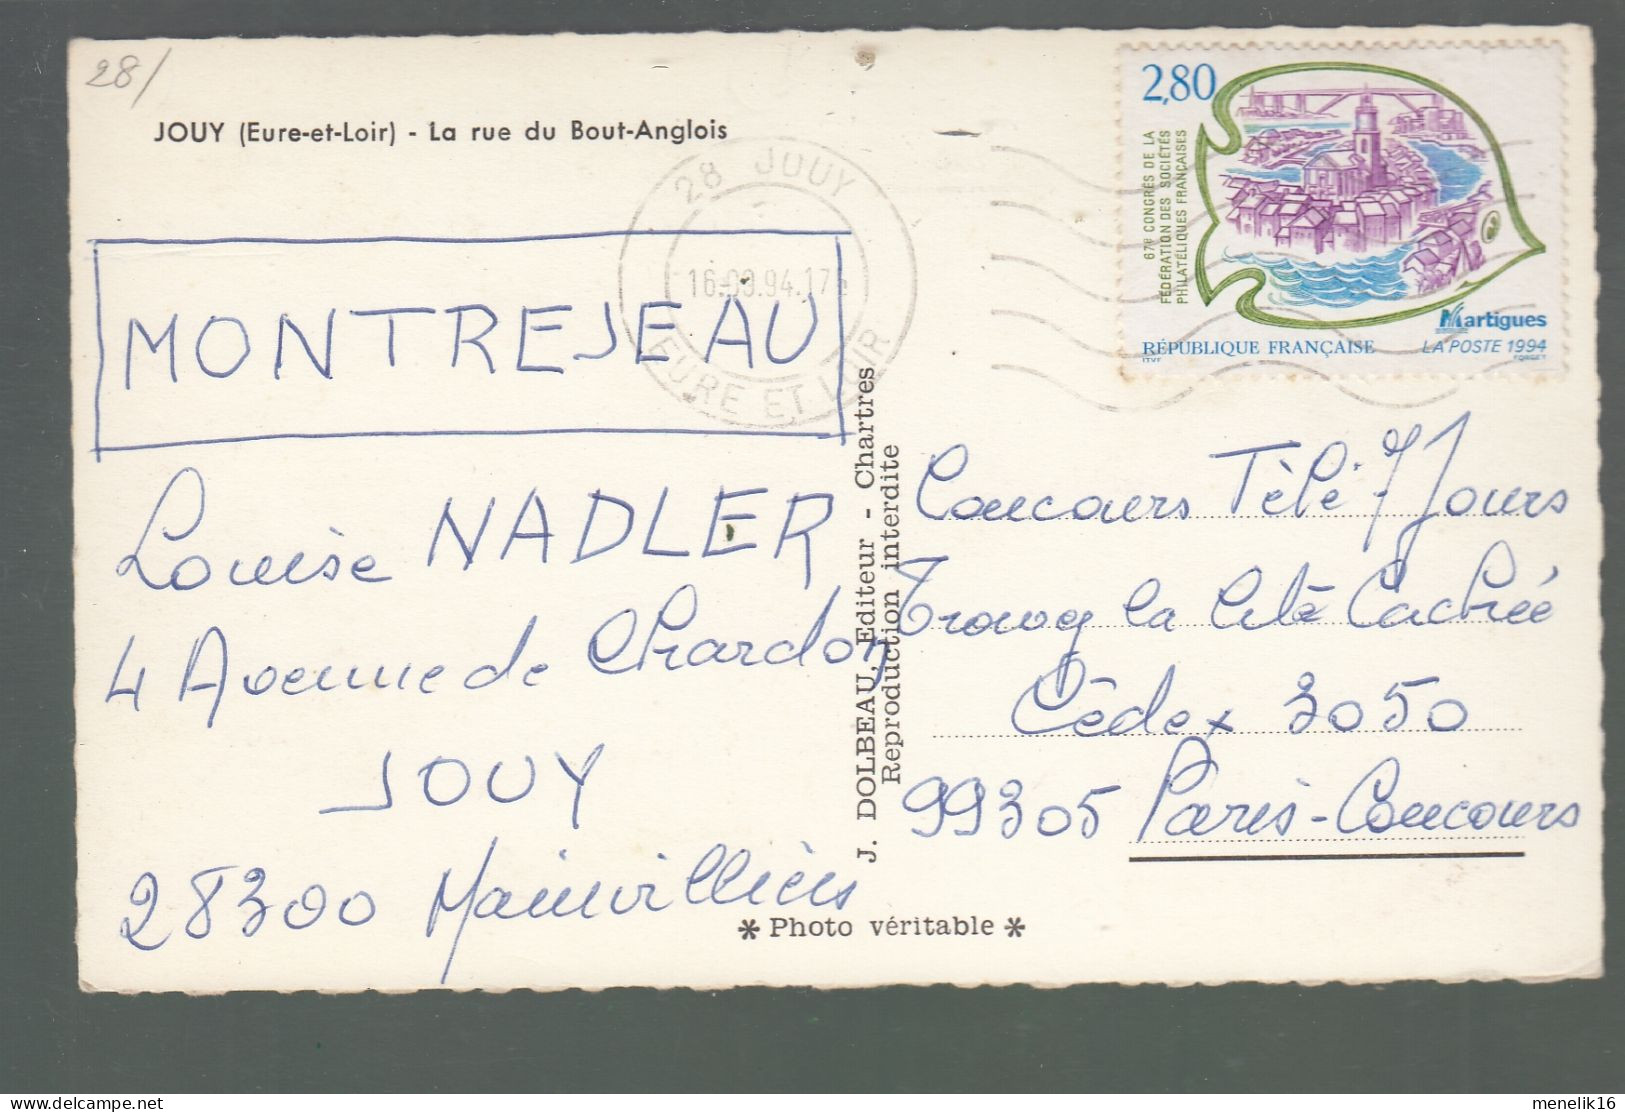 28/
JOUY (Eure-et-Loir) - La rue du Bout-Anglois
28 JOUY
16-09.94.17
EURE ET LOIR
2,80
67e CONGRÈS DE LA
FÉDÉRATION DES SOCIÉTÉS
PHILATÉLIQUES FRANÇAISES
Martigues
RÉPUBLIQUE FRANÇAISE
LA POSTE 1994
ITVF
FORGET
MONTREJEAU
Louise NADLER
4 Avenue de Chardon
JOUY
28300 Mainvilliers
J. DOLBEAU, Editeur - Chartres
Reproduction interdite
Concours Télé 7 Jours
Trouvez la Cité Cachée
Cédex 3050
99305 Paris-Concours
* Photo véritable *
delcampe.net
menelik16